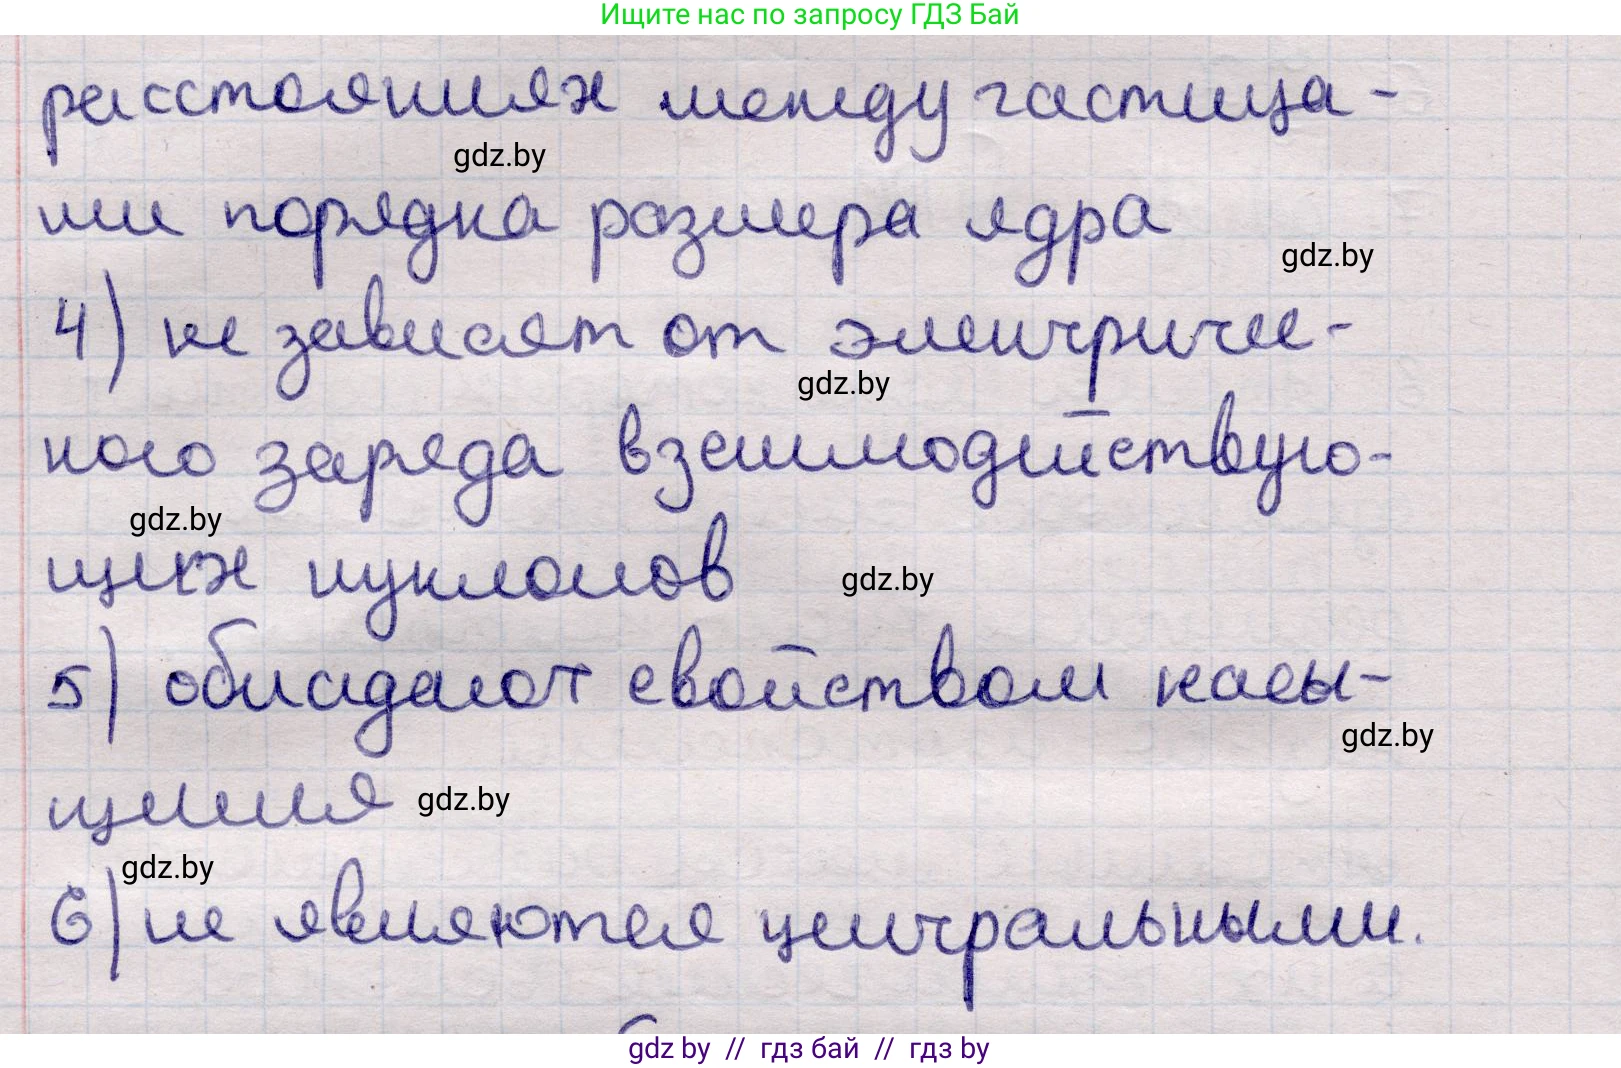 Ищите нас по запросу ГДЗ Бай
расстояниях между частица-
gdz.by
ми порядка размера ядра
gdz.by
4) не зависят от электричес-
gdz.by
кого заряда взаимодействую-
gdz.by
щих нуклонов
gdz.by
5) обладают свойством насы-
gdz.by
щения
gdz.by
gdz.by
6) не являются центральными.
gdz by // гдз бай // гдз by